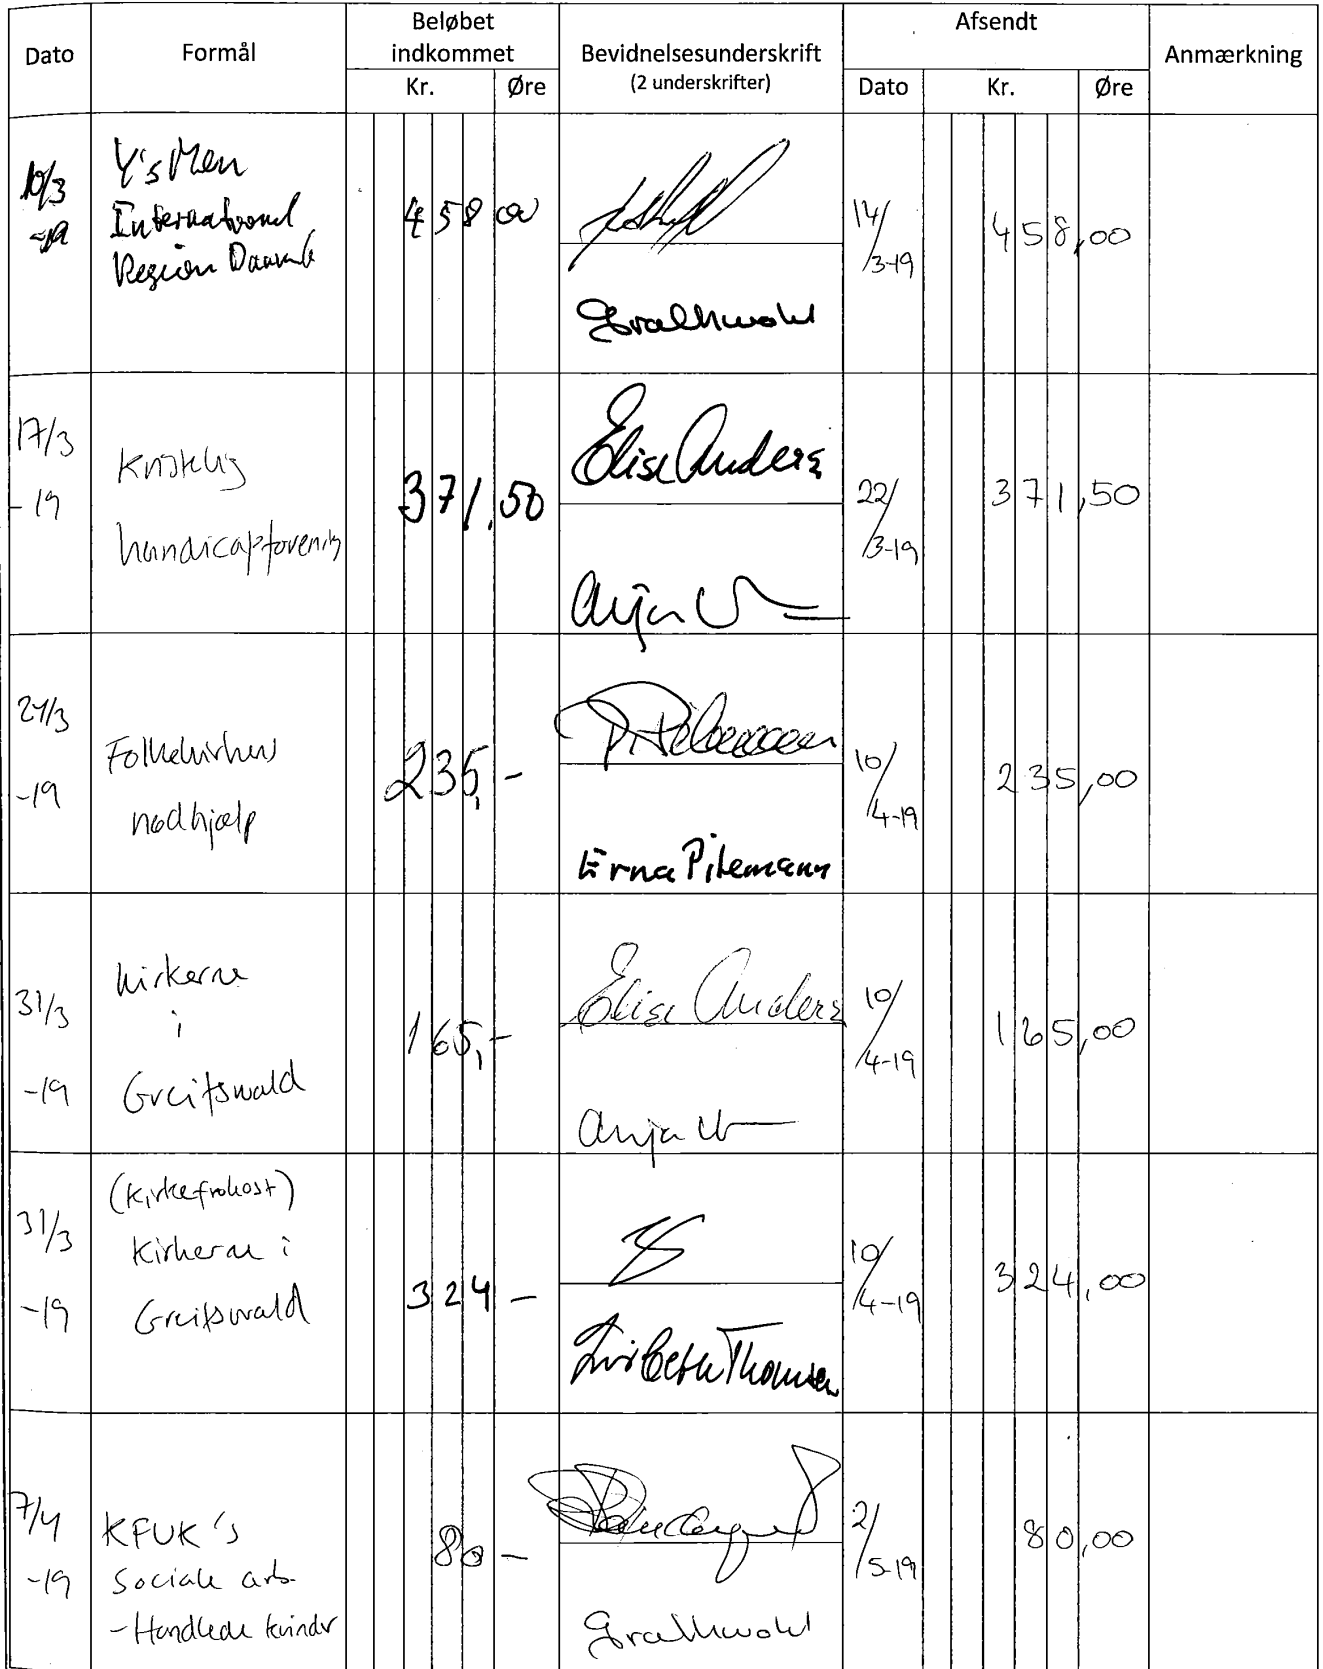 Dato Formål Beløbet indkommet Bevidnelsesunderskrift Afsendt Anmærkning
(2 underskrifter)
Kr. Øre Dato Kr. Øre
10/3 -19
Y's Men
International
Region Danmark
458 00
14/3-19
458,00
17/3 -19
Kristelig
handicapforening
371,50
Elise Anders
Anja
22/3-19
371,50
24/3 -19
Folkekirkens
nødhjælp
235,-
Erna Pilemann
10/4-19
235,00
31/3 -19
Kirkerne
i
Greifswald
165,-
Elise Anders
Anja
10/4-19
165,00
31/3 -19
(Kirkefrokost)
Kirkerne i
Greifswald
324 -
Lisbeth Thomsen
10/4-19
324,00
7/4 -19
KFUK's
Sociale arb.
- Handlede kvinder
80 -
2/5-19
80,00